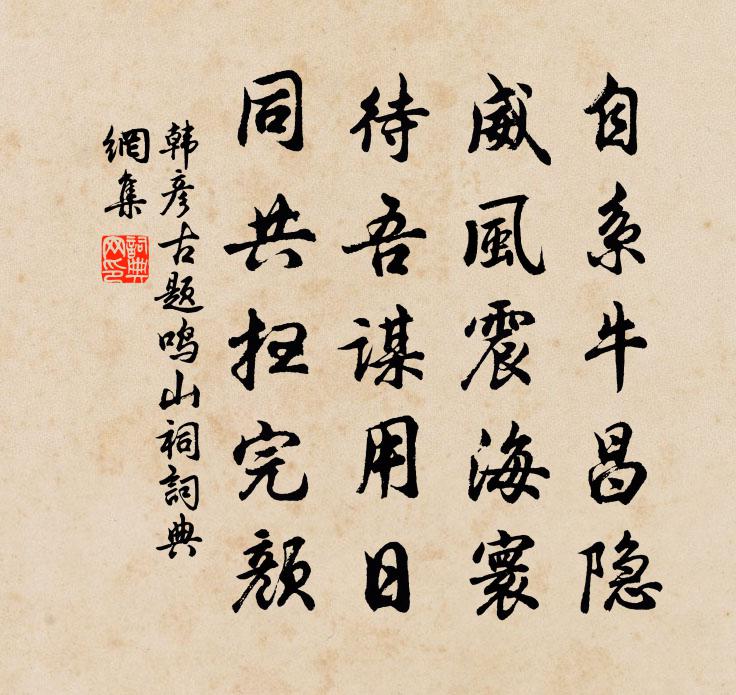 自系牛昌隐
威風震海寰
待吾谋用日
同共扫完颜
韩彦古题鸣山祠詞典
網集
詞典网印